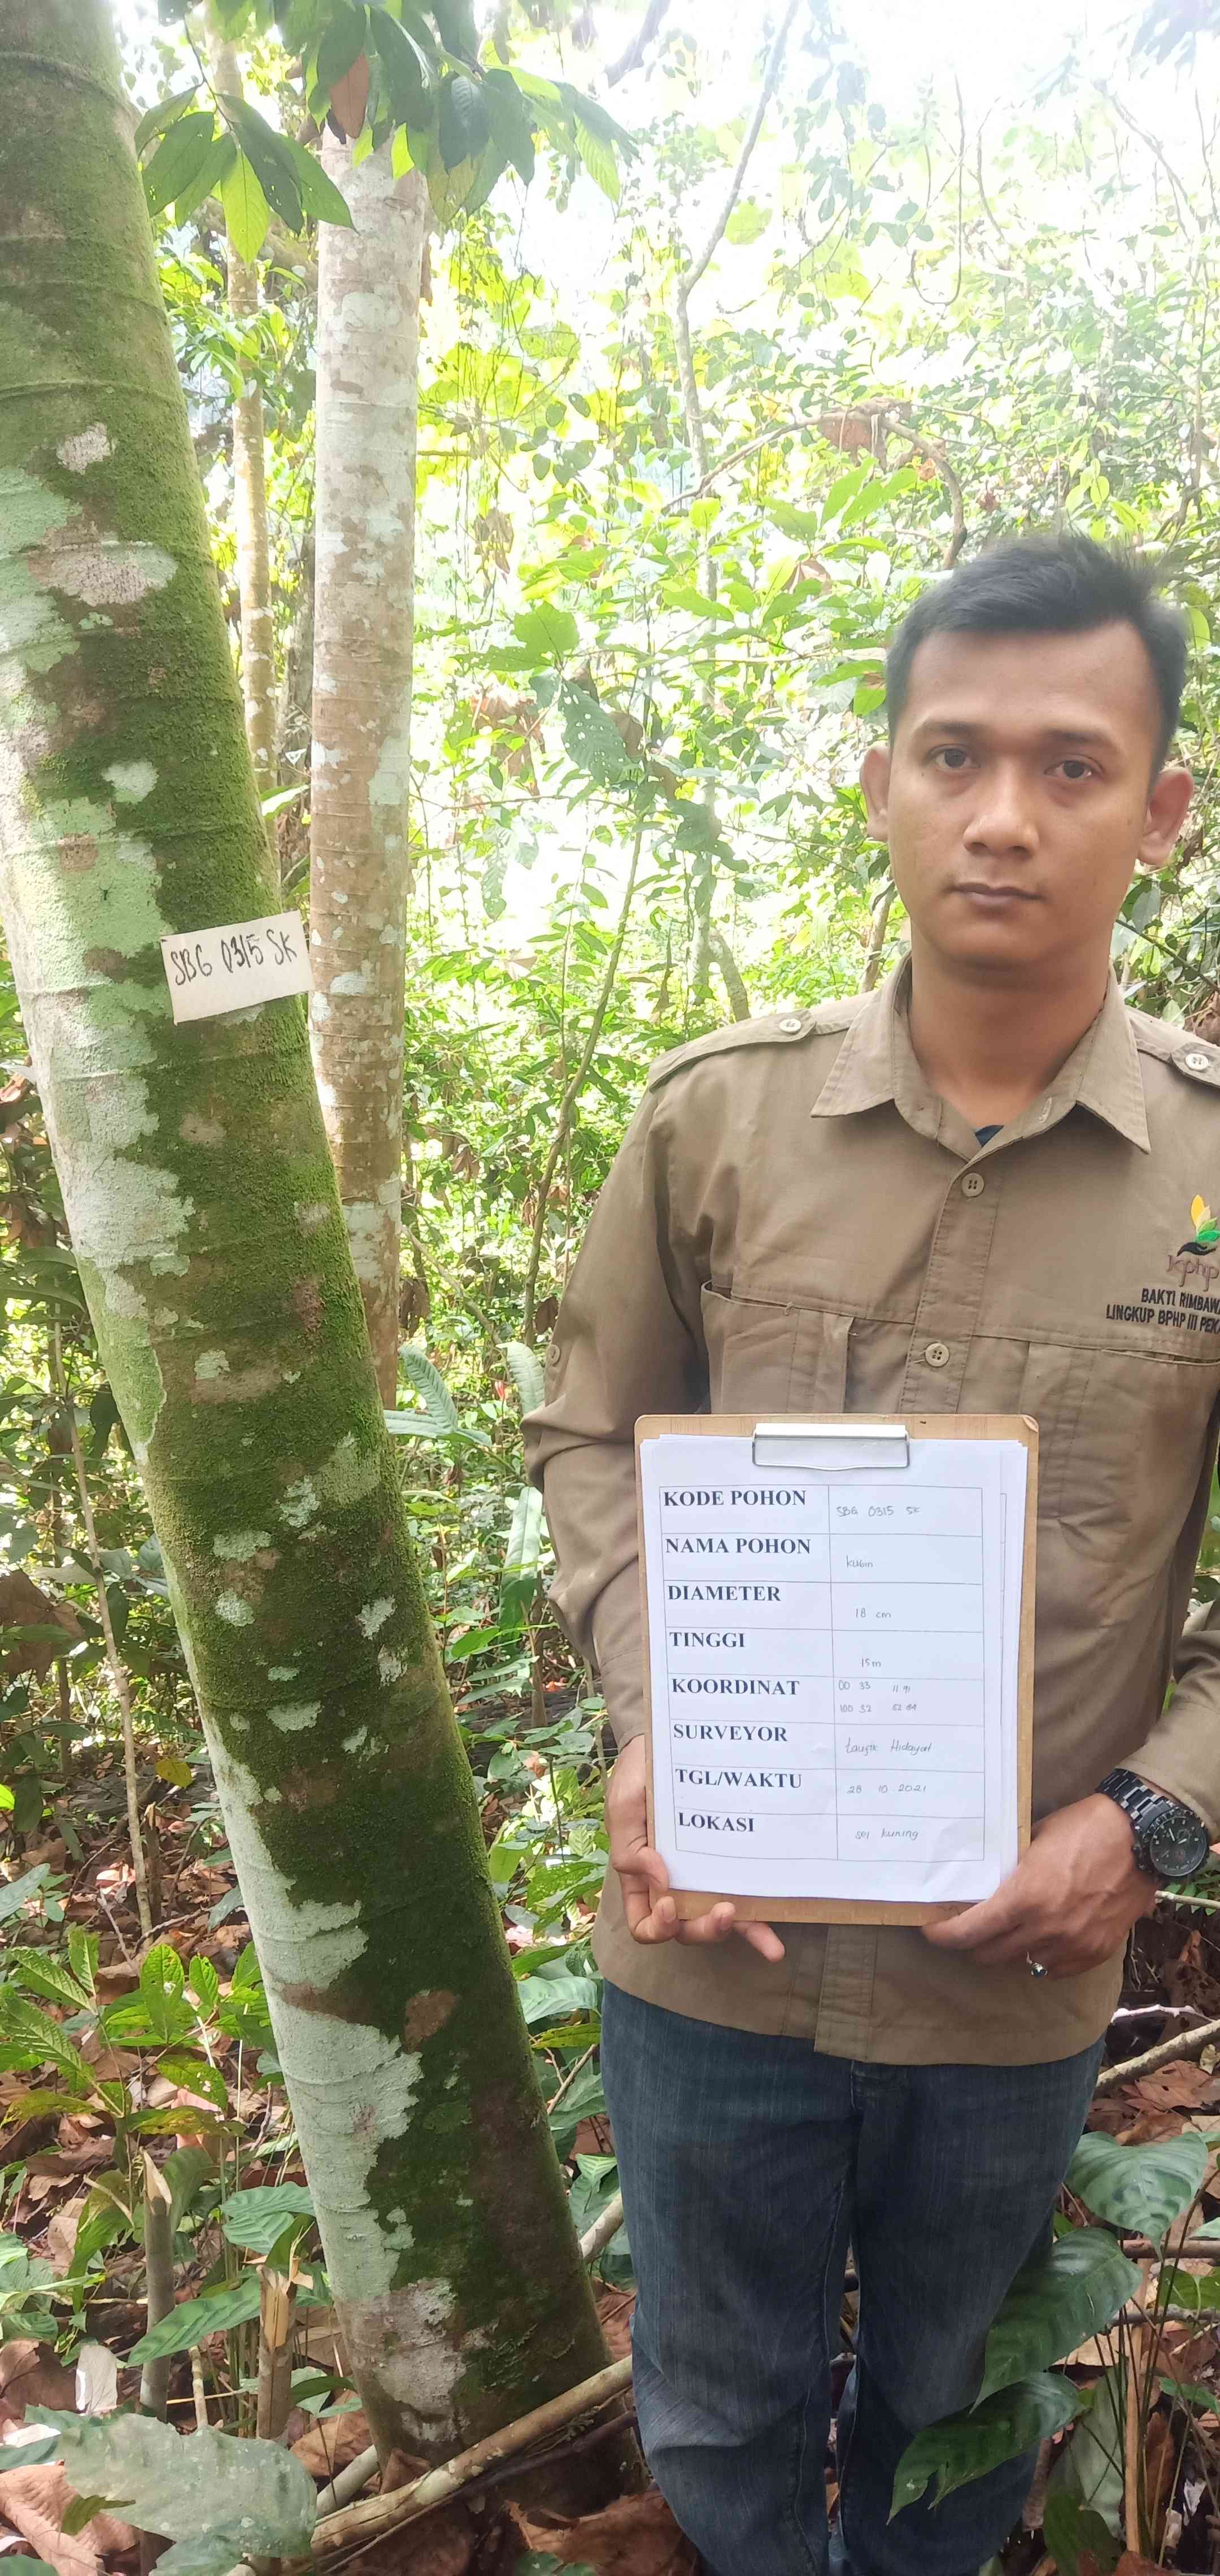 SBG 0315 SK
kphp
BAKTI RIMBAWA
LINGKUP BPHP III PEK
KODE POHON SBG 0315 SK
NAMA POHON
DIAMETER 18 cm
TINGGI 15 m
KOORDINAT 00 33 11 91
100 32
SURVEYOR Taufik Hidayat
TGL/WAKTU 28 10 2021
LOKASI sei kuning